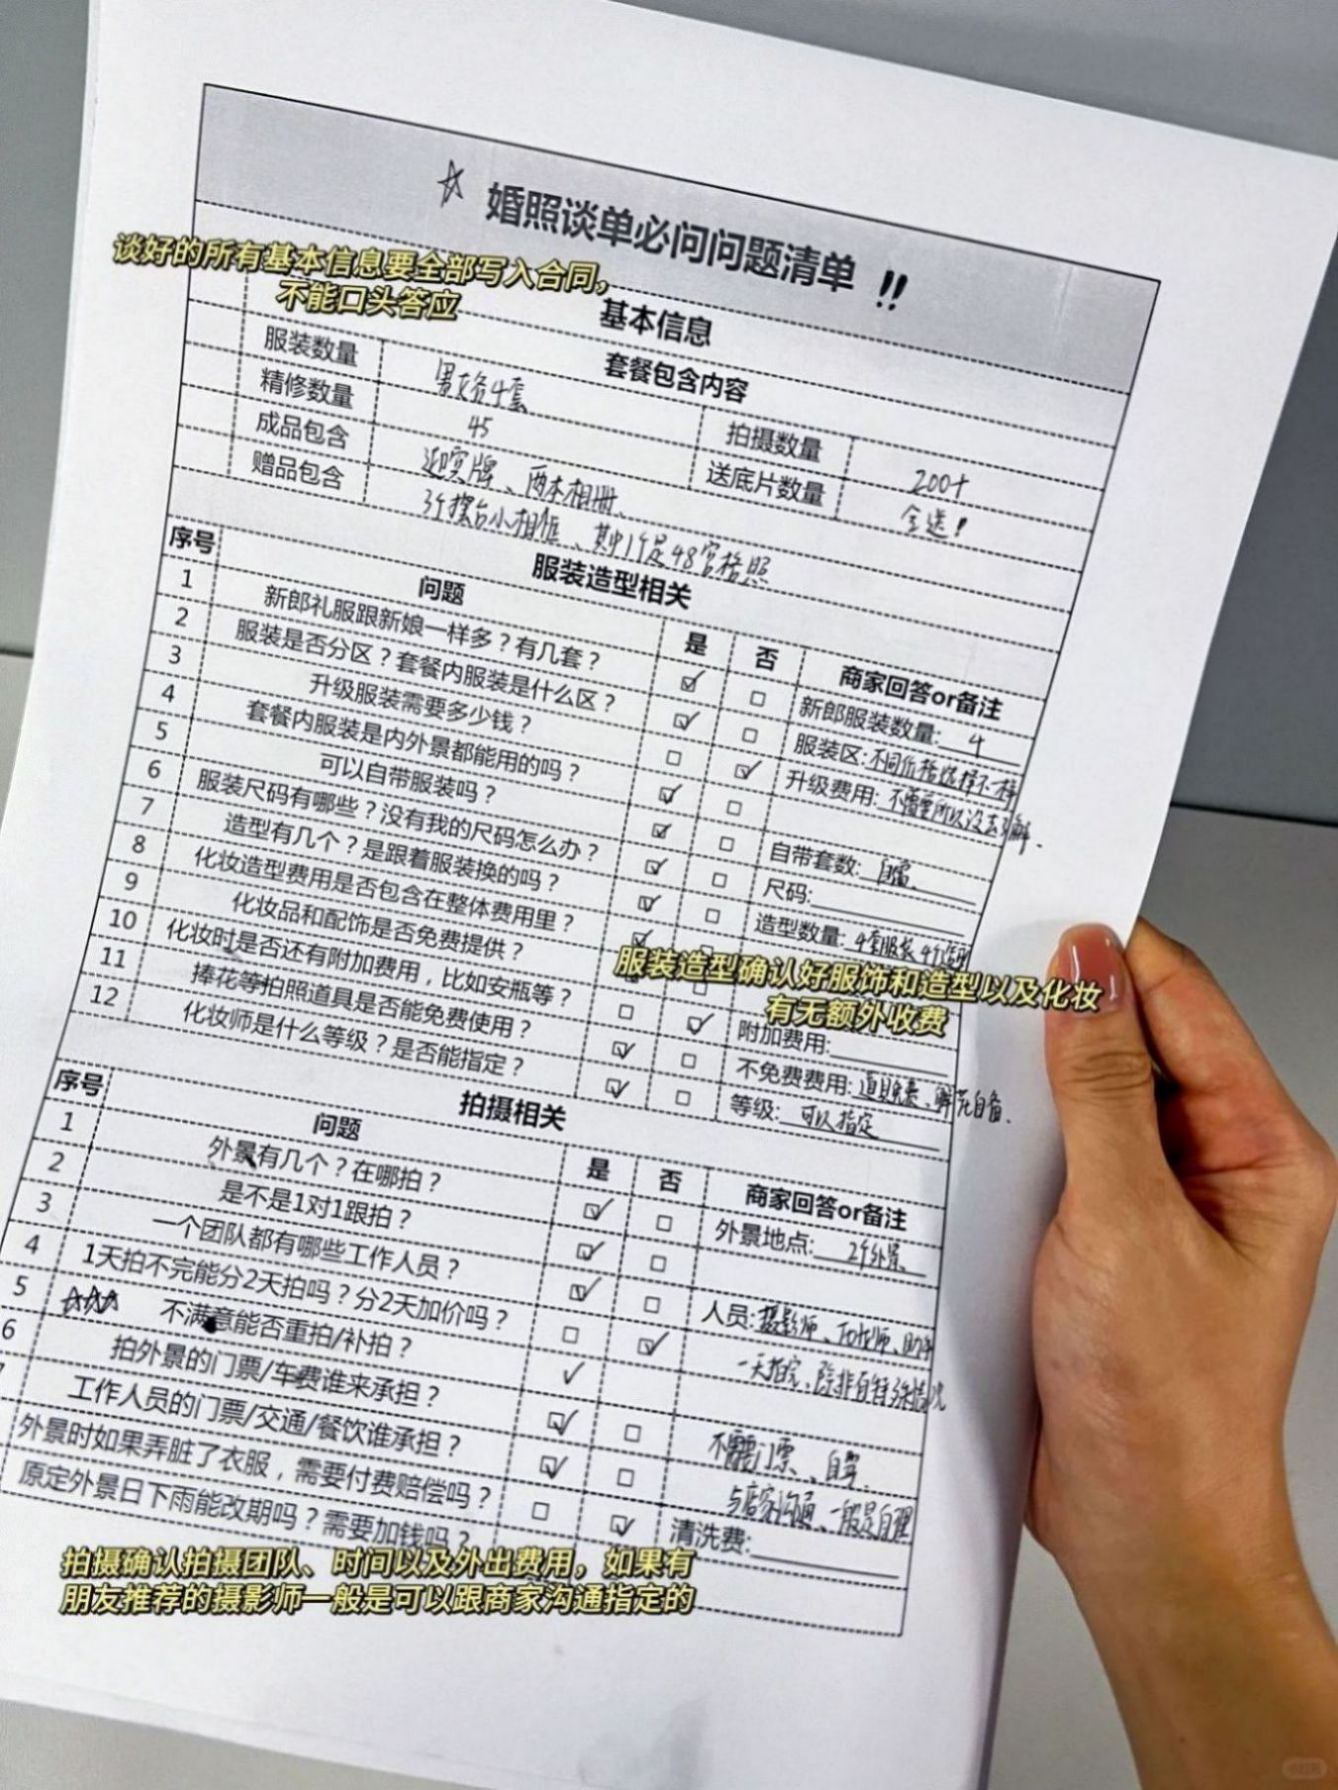 ☆ 婚照谈单必问问题清单 !!
谈好的所有基本信息要全部写入合同，
不能口头答应
基本信息
套餐包含内容
服装数量 男女各4套 拍摄数量 200+
精修数量 45 送底片数量 全送！
成品包含 迎宾牌、两本相册、
赠品包含 3个摆台小相框、其中1个是48宫格照
服装造型相关
序号 问题 是 否 商家回答or备注
1 新郎礼服跟新娘一样多？有几套？ ☑ □ 新郎服装数量: 4
2 服装是否分区？套餐内服装是什么区？ ☑ □ 服装区: 不同价格选择不一样
3 升级服装需要多少钱？ □ ☑ 升级费用: 不需要所以没去了解.
4 套餐内服装是内外景都能用的吗？ ☑ □
5 可以自带服装吗？ ☑ □ 自带套数:
6 服装尺码有哪些？没有我的尺码怎么办？ ☑ □ 尺码:
7 造型有几个？是跟着服装换的吗？ ☑ □ 造型数量: 4套服装4个造型
8 化妆造型费用是否包含在整体费用里？
9 化妆品和配饰是否免费提供？
服装造型确认好服饰和造型以及化妆
有无额外收费
10 化妆时是否还有附加费用，比如安瓶等？ □ ☑ 附加费用:
11 捧花等拍照道具是否能免费使用？ ☑ □ 不免费费用: 道具免费、鲜花自备.
12 化妆师是什么等级？是否能指定？ ☑ □ 等级: 可以指定
拍摄相关
序号 问题 是 否 商家回答or备注
1 外景有几个？在哪拍？ ☑ □ 外景地点: 2个外景、
2 是不是1对1跟拍？ ☑ □
3 一个团队都有哪些工作人员？ ☑ □ 人员: 摄影师、化妆师、助理
4 1天拍不完能分2天拍吗？分2天加价吗？ □ ☑ 一天拍完、除非有特殊情况
5 ☆☆☆ 不满意能否重拍/补拍？ ✓
6 拍外景的门票/车费谁来承担？ ☑ □ 不需要门票、自驾、
7 工作人员的门票/交通/餐饮谁承担？ ☑ □ 与店家沟通、一般是自理
外景时如果弄脏了衣服，需要付费赔偿吗？ □ ☑ 清洗费:
原定外景日下雨能改期吗？需要加钱吗？
拍摄确认拍摄团队、时间以及外出费用，如果有
朋友推荐的摄影师一般是可以跟商家沟通指定的